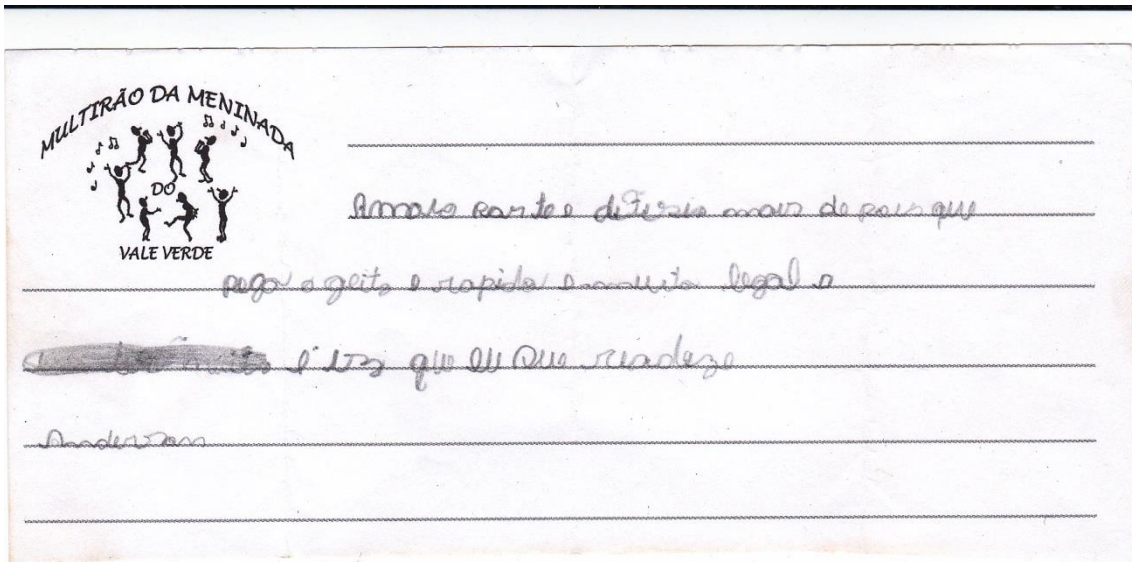 MULTIRÃO DA MENINADA
DO
VALE VERDE
Amaio parte e difisio mais de pois que
pega o geito e rapido e muito legal e
é isz que eu que
Anderson